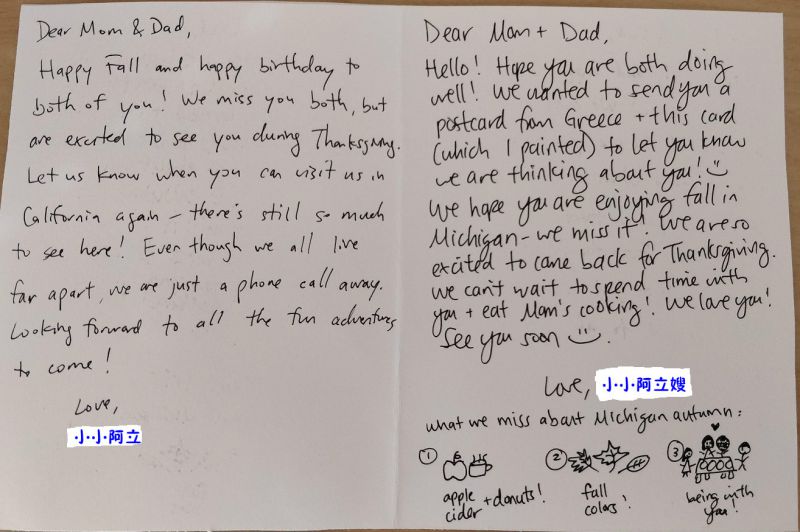 Dear Mom & Dad,
Happy Fall and happy birthday to
both of you! We miss you both, but
are excited to see you during Thanksgiving.
Let us know when you can visit us in
California again – there's still so much
to see here! Even though we all live
far apart, we are just a phone call away.
Looking forward to all the fun adventures
to come!
Love,
小小阿立
Dear Mom + Dad,
Hello! Hope you are both doing
well! We wanted to send you a
postcard from Greece + this card
(which I painted) to let you know
we are thinking about you!
We hope you are enjoying fall in
Michigan - we miss it! We are so
excited to come back for Thanksgiving.
We can't wait to spend time with
you + eat Mom's cooking! We love you!
See you soon
Love, 小小阿立嫂
What we miss about Michigan autumn:
① ② ③
apple cider + donuts!
fall colors!
being with you!